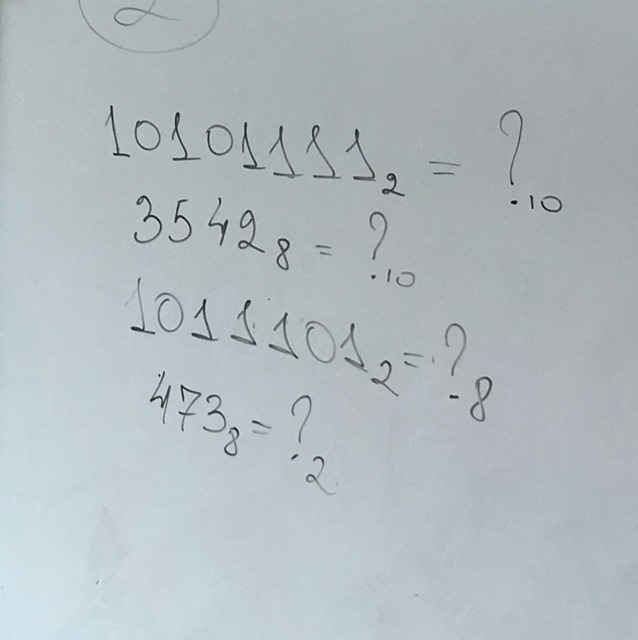 2
10101111₂ = ?₁₀
3542₈ = ?₁₀
1011101₂ = ?₈
473₈ = ?₂